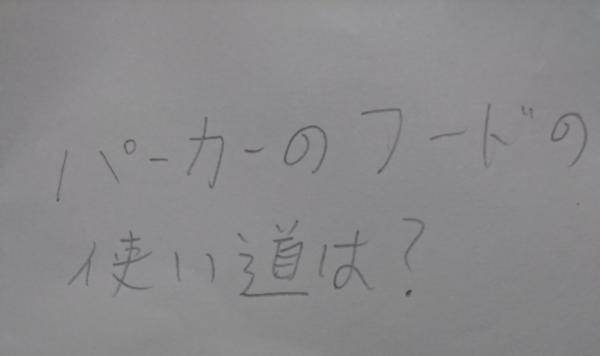 パーカーのフードの
使い道は?